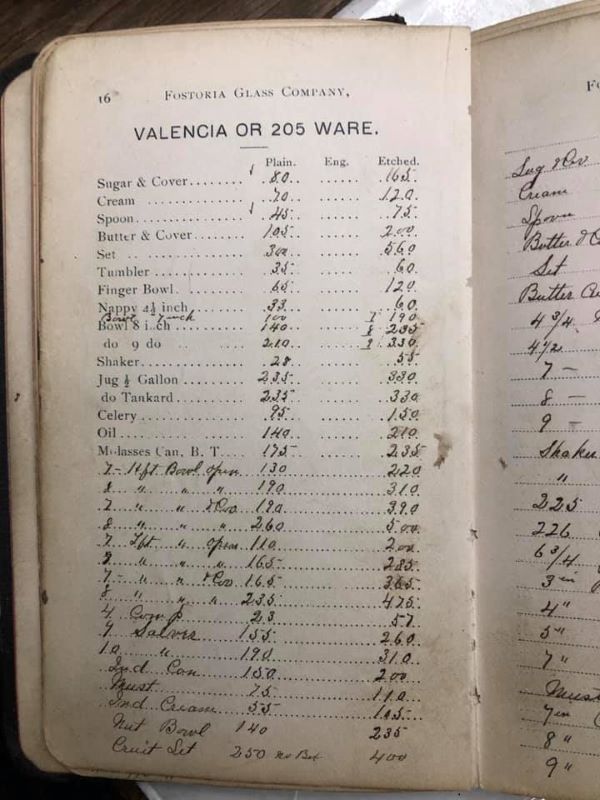 16 FOSTORIA GLASS COMPANY,
VALENCIA OR 205 WARE.
Plain. Eng. Etched.
Sugar & Cover ........ 80 ...... 165
Cream ........ 70 ...... 120
Spoon ........ 45 ...... 75
Butter & Cover ........ 105 ...... 200
Set ........ 300 ...... 560
Tumbler ........ 35 ...... 60
Finger Bowl ........ 65 ...... 120
Nappy 4½ inch ........ 33 ...... 60
Bowl 7 inch 100 7 190
Bowl 8 inch ........ 140 8 235
do 9 do 210 9 330
Shaker ........ 28 ...... 55
Jug ½ Gallon ........ 235 ...... 330
do Tankard ........ 235 ...... 330
Celery ........ 95 ...... 150
Oil ........ 140 ...... 210
Molasses Can, B. T. .... 175 ...... 235
7 - Hft Bowl open 130 220
8 " " " 190 310
7 " " & Cov 190 390
8 " " " 260 500
7 Lft " open 110 200
8 " " " 165 285
7 - " " & Cov 165 365
8 " " " 235 475
4 Comp 23 57
9 Salver 155 260
10 " 190 310
Ind Can 150 200
Must 75 110
Ind Cream 55 105
Nut Bowl 140 235
Cruit Set 250 no Bot 400
Sug & Cov
Cream
Spoon
Butter &
Set
Butter
4 3/4
4 1/2
7 -
8 -
9 -
Shaker
"
225
226
6 3/4
3 in
4"
5"
7"
Must
7 in
8"
9"